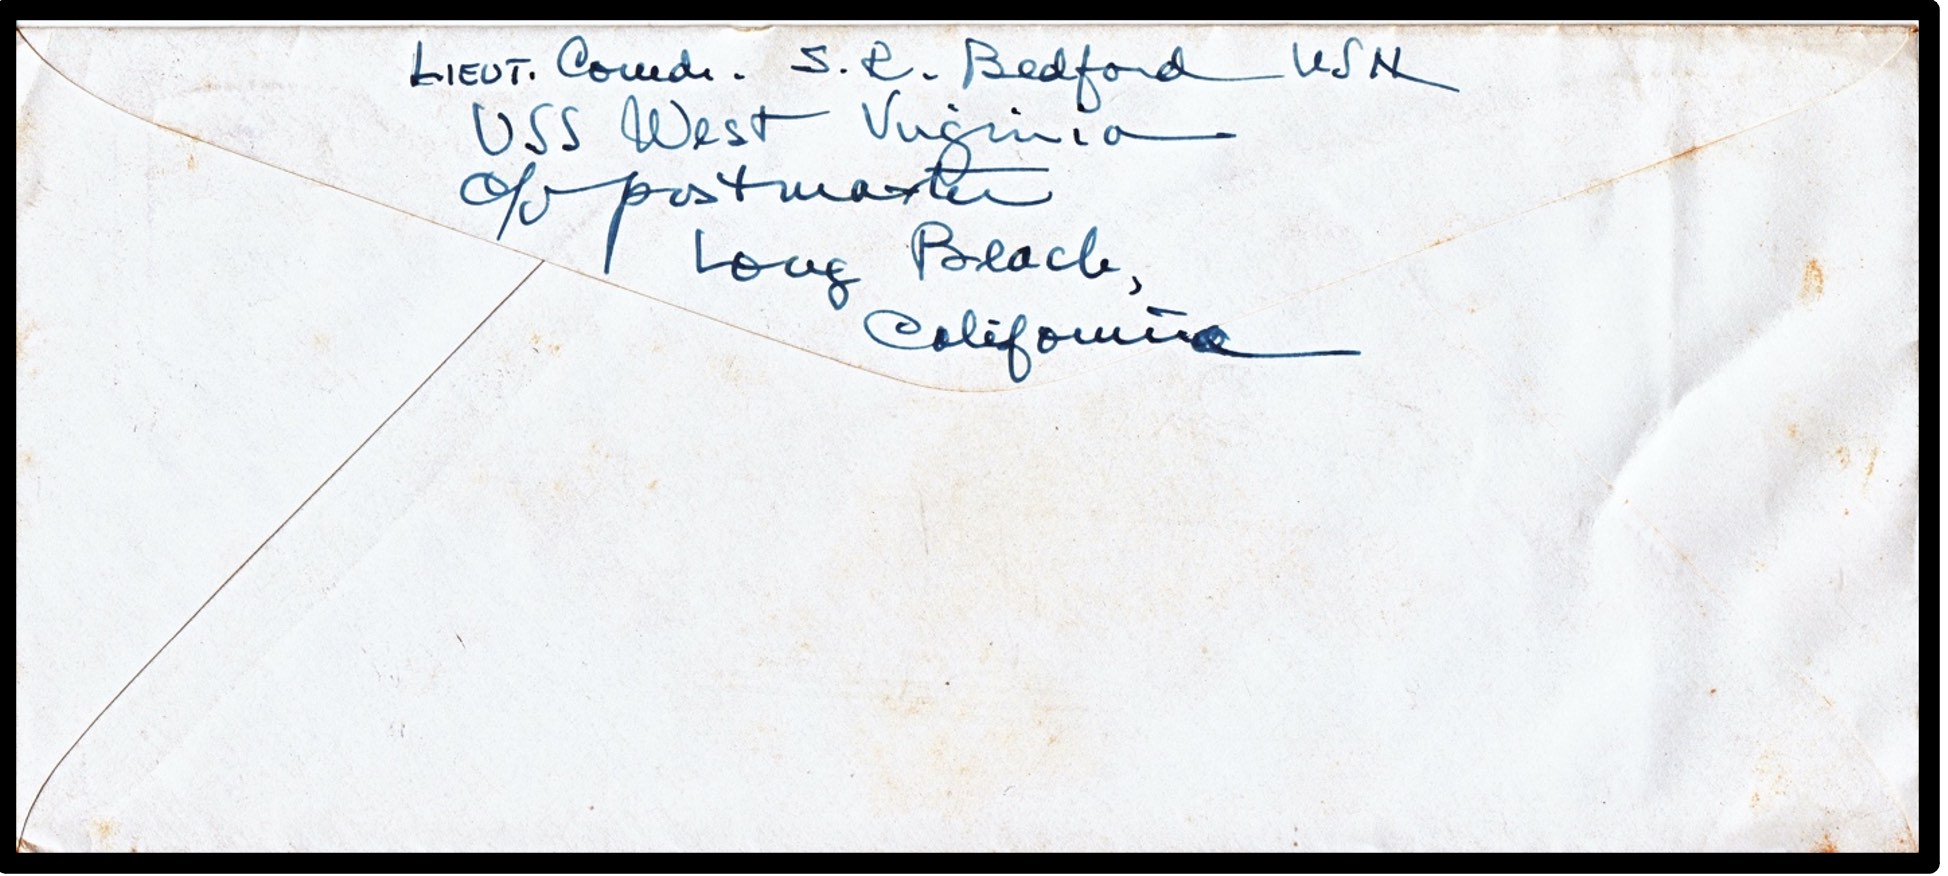 LIEUT. Comdr. S. R. Bedford USN
USS West Virginia
c/o postmaster
Long Beach,
California